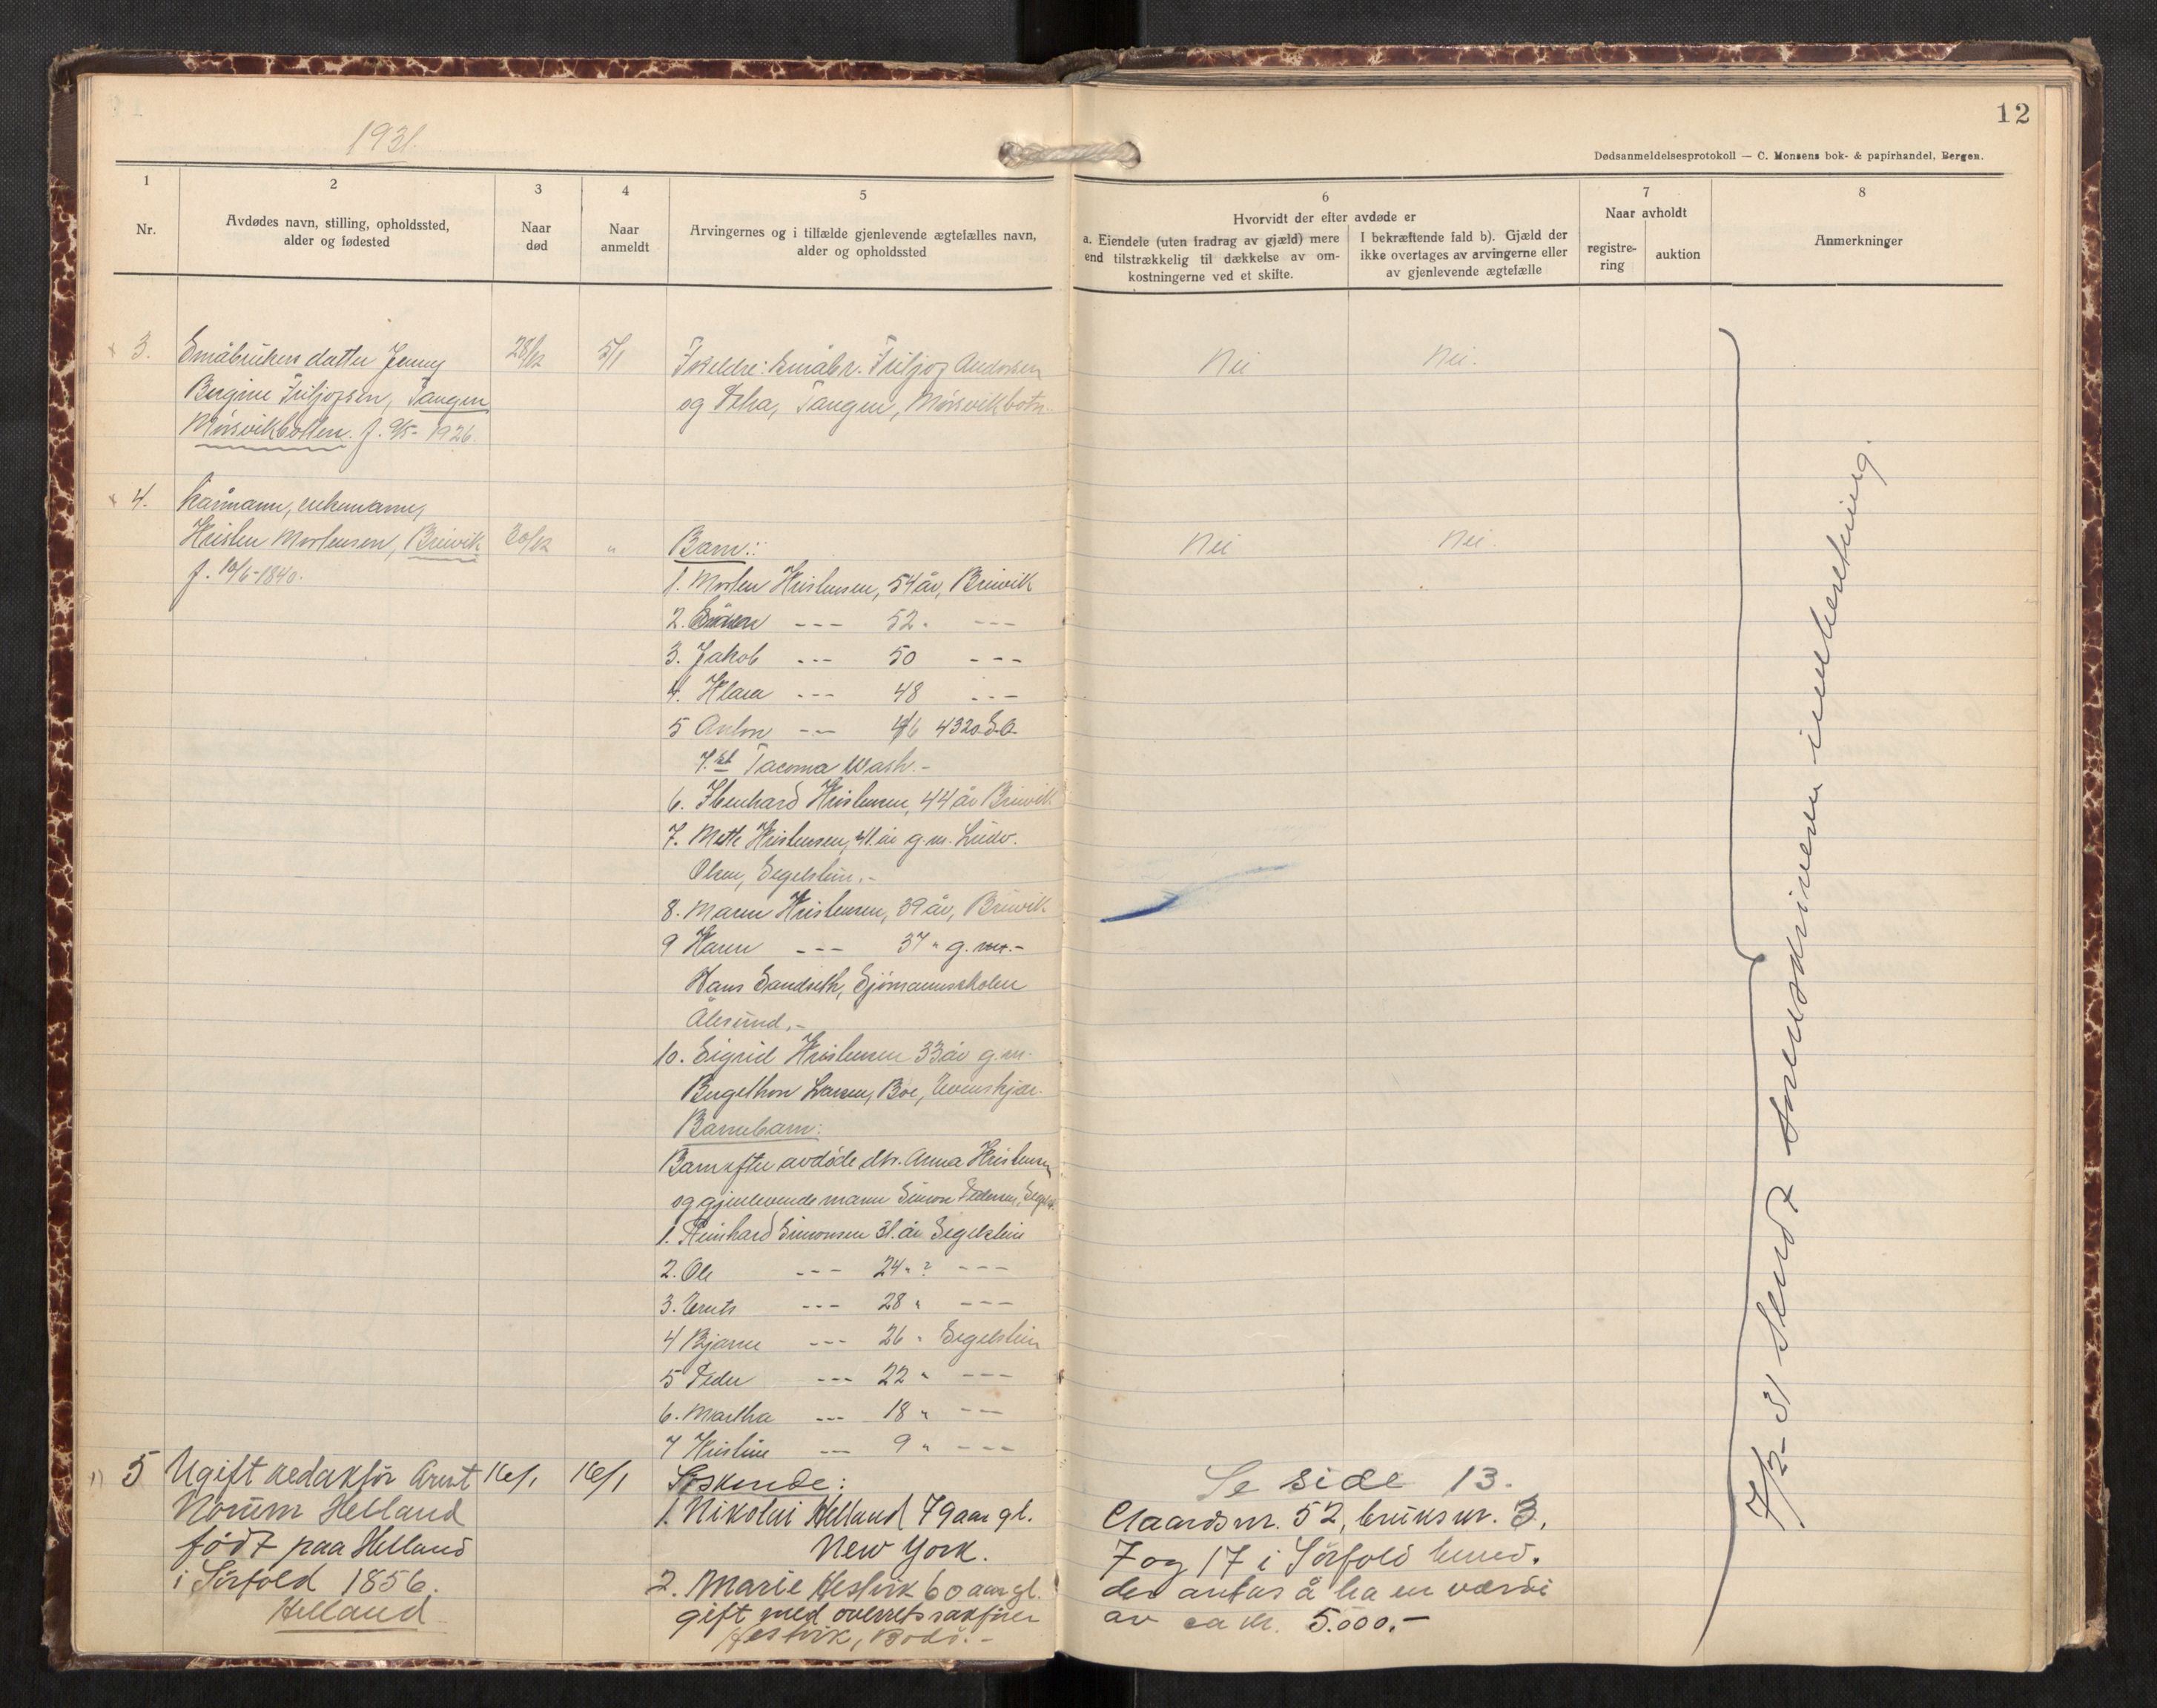 1931.
12
Dødsanmeldelsesprotokoll — C. Monsens bok- & papirhandel, Bergen.
1
Nr.
2
Avdødes navn, stilling, opholdssted,
alder og fødested
3
Naar
død
4
Naar
anmeldt
5
Arvingernes og i tilfælde gjenlevende ægtefælles navn,
alder og opholdssted
6
Hvorvidt der efter avdøde er
a. Eiendele (uten fradrag av gjæld) mere
end tilstrækkelig til dækkelse av om-
kostningerne ved et skifte.
I bekræftende fald b). Gjæld der
ikke overtages av arvingerne eller
av gjenlevende ægtefælle
7
Naar avholdt
registre-
ring
auktion
8
Anmerkninger
3.
Småbrukers datter Jenny
Bergine Fritjofsen, Tangen
Mörsvikbotten. f. 9/5- 1926.
28/12
5/1
Foreldre: Småbr. Fritjof Andersen
og Tangen, Mörsvikbotn.
Nei
Nei.
4.
Kårmann, enkemann,
Kristen Mortensen, Breivik
f. 10/6-1840.
30/12
"
Barn:
1. Morten Kristensen, 54 år, Breivik
2. --- 52. ---
3. Jakob --- 50 ---
4. Klara --- 48 ---
5 Anton --- 46 4320
Tacoma Wash.-
6. Kristensen, 44 år Breivik
7. Kristensen, 41. år g.m. Ludv.
Olsen, Segelstein.-
8. Maren Kristensen, 39 år, Breivik
9 Karen --- 37 " g. m.-
Hans Sandseth, Sjömannsskolen
Ålesund.-
10. Sigrid Kristensen 33 år g.m.
Larsen, Boe, Evenskjær.
Barnebarn:
Barn efter avdöde dtr. Anna Kristensen
og gjenlevende mann Simon Pedersen,
1. Reinhard Simonsen 31. år Segelstein
2. Ole --- 24 " ? ---
3. --- 28 " ---
4 Bjarne --- 26 " Segelstein
5 Peder --- 22 " ---
6. Martha --- 18 " ---
7 Kristine --- 9 " ---
Nei
Nei.
5
Ugift redaktör Arnt
Norum Helland
født paa Helland
i Sörfold 1856.
Helland
16/1
16/1
Söskende:
1. Nikolai Helland 79 aar gl.
New York.
2. Marie Hestvik 60 aar gl.
gift med overretssakförer
Hestvik, Bodö.-
Se side 13.
Gaardsnr. 52, bruksnr. 3,
7 og 17 i Sörfold herred.
der antas å ha en værdi
av ca kr. 5.000.-
7/2-31 Sendt sorenskriveren innberetning.